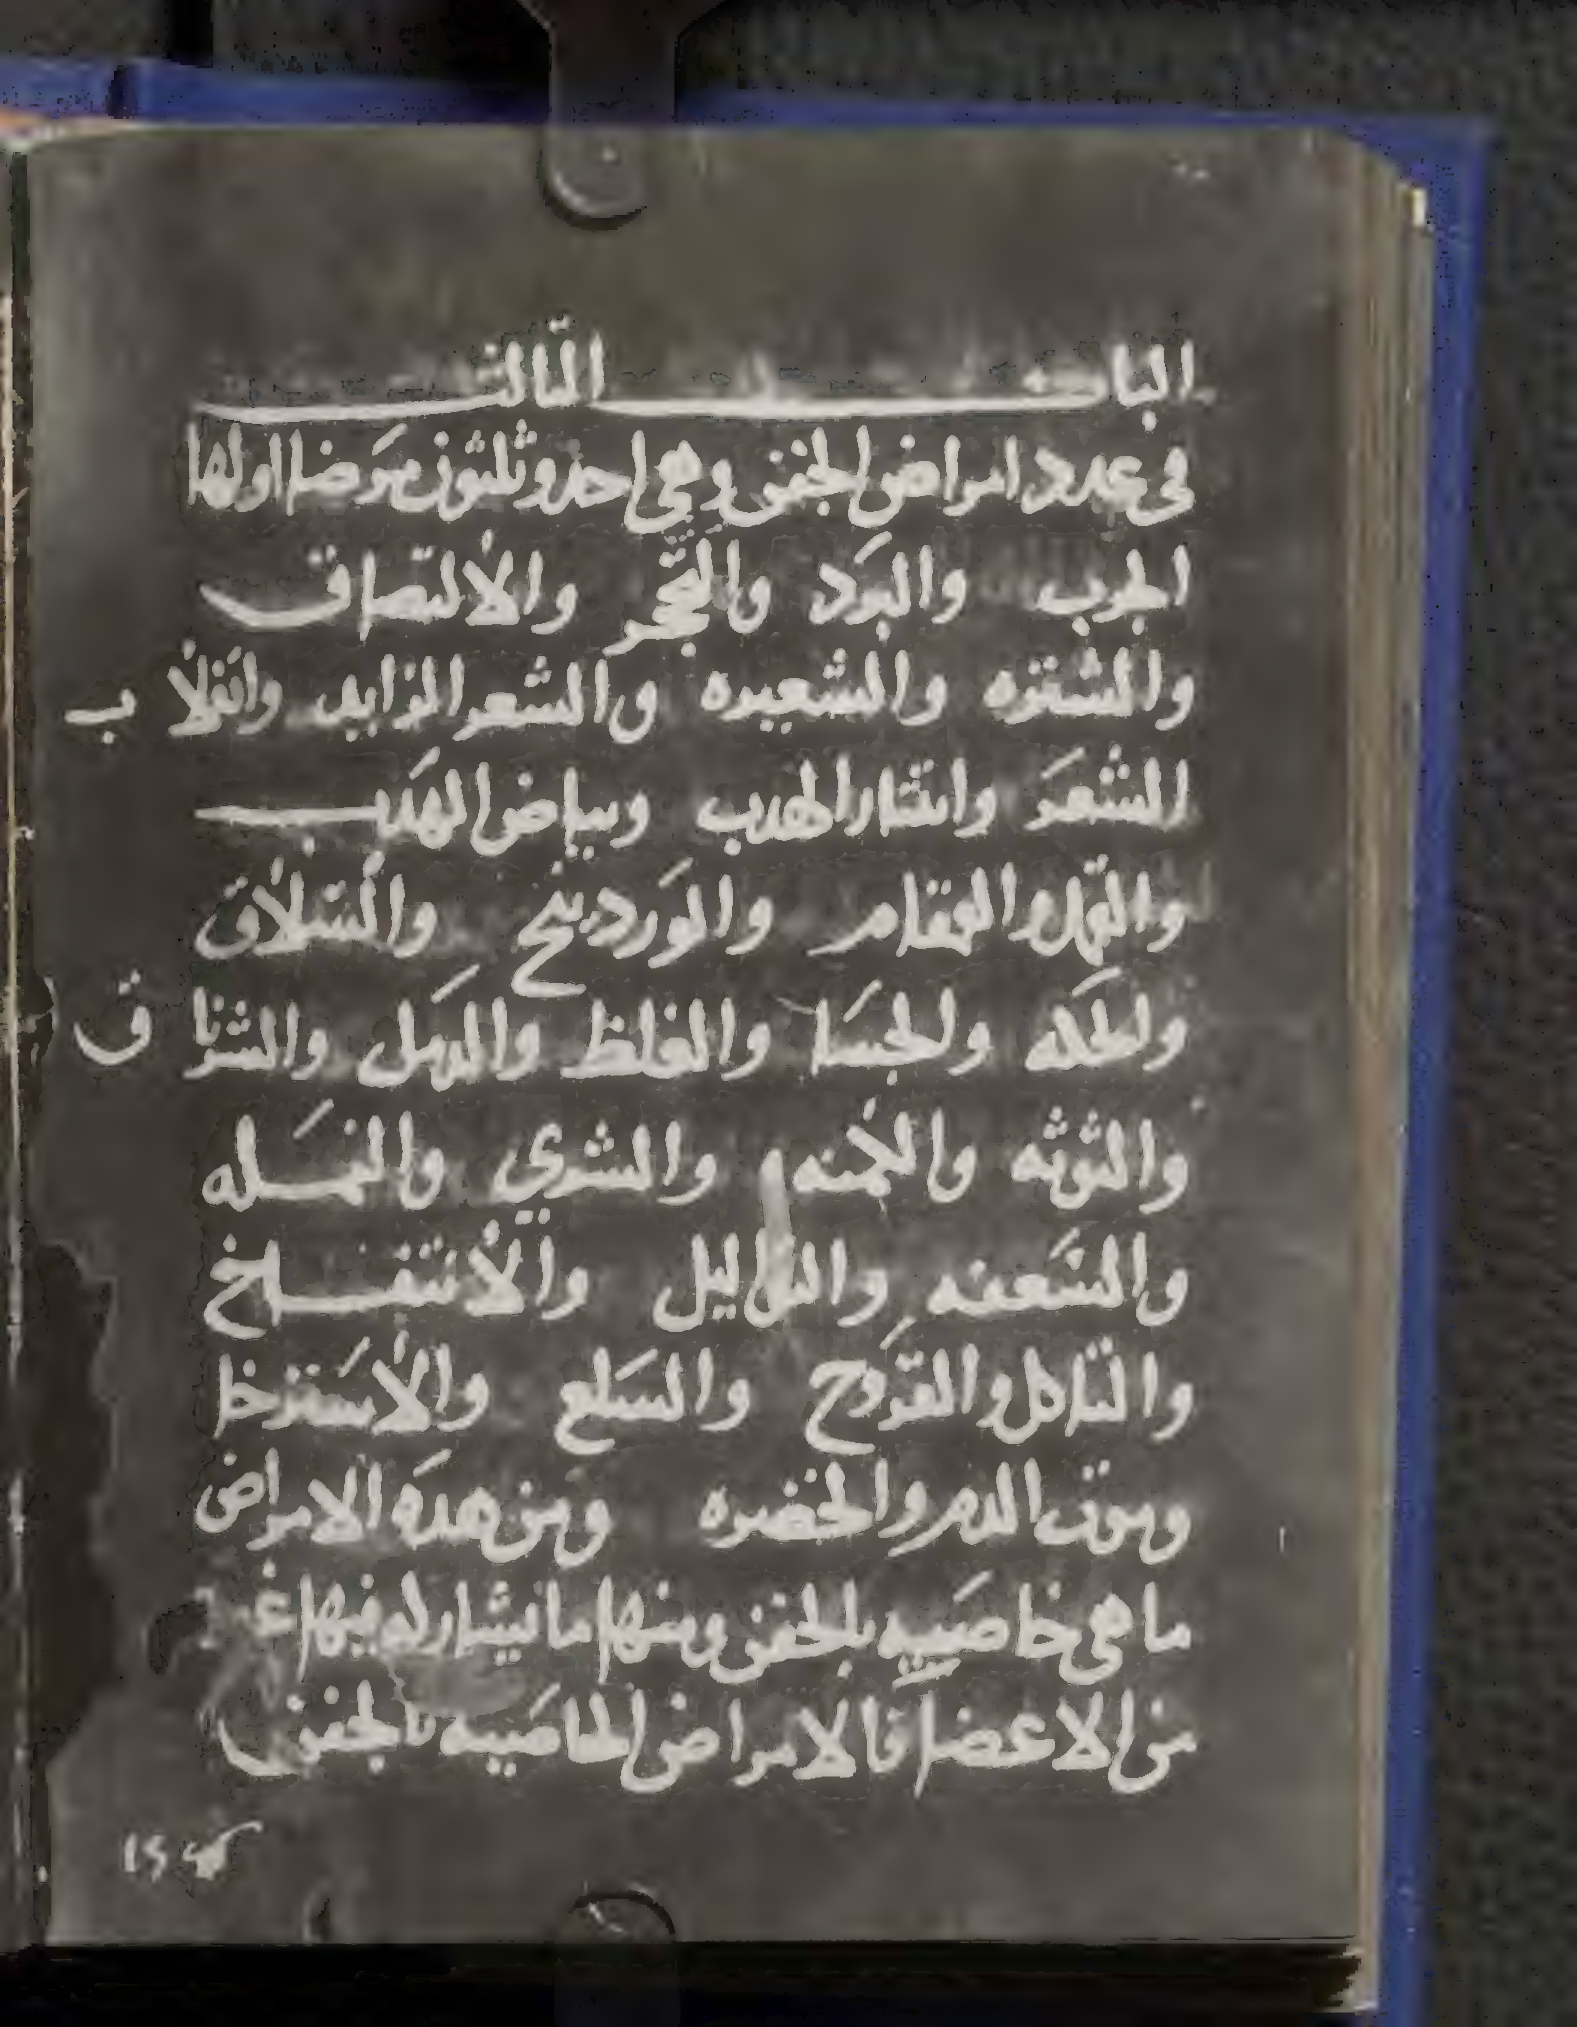 الباب الثالث
في عدد امراض الجفن وهي احد وثلثون مرضا اولها
الجرب والبرد والتحجر والالتصاق
والشتره والشعيره والشعر الزايد وانقلاب
الشعر وانتثار الهدب وبياض الهدب
والقمل والقمقام والوردينج والسلاق
والحكه والجسا والغلظ والدمل والشرناق
والتوثه والكمنه والشري والنمله
والسعفه والثاليل والانتفاخ
والتاكل والقروح والسلع والاسترخا
وموت الدم والخضره ومن هذه الامراض
ما هي خاصيه بالجفن ومنها ما يشاركه فيها
من الاعضا فالامراض الخاصيه بالجفن